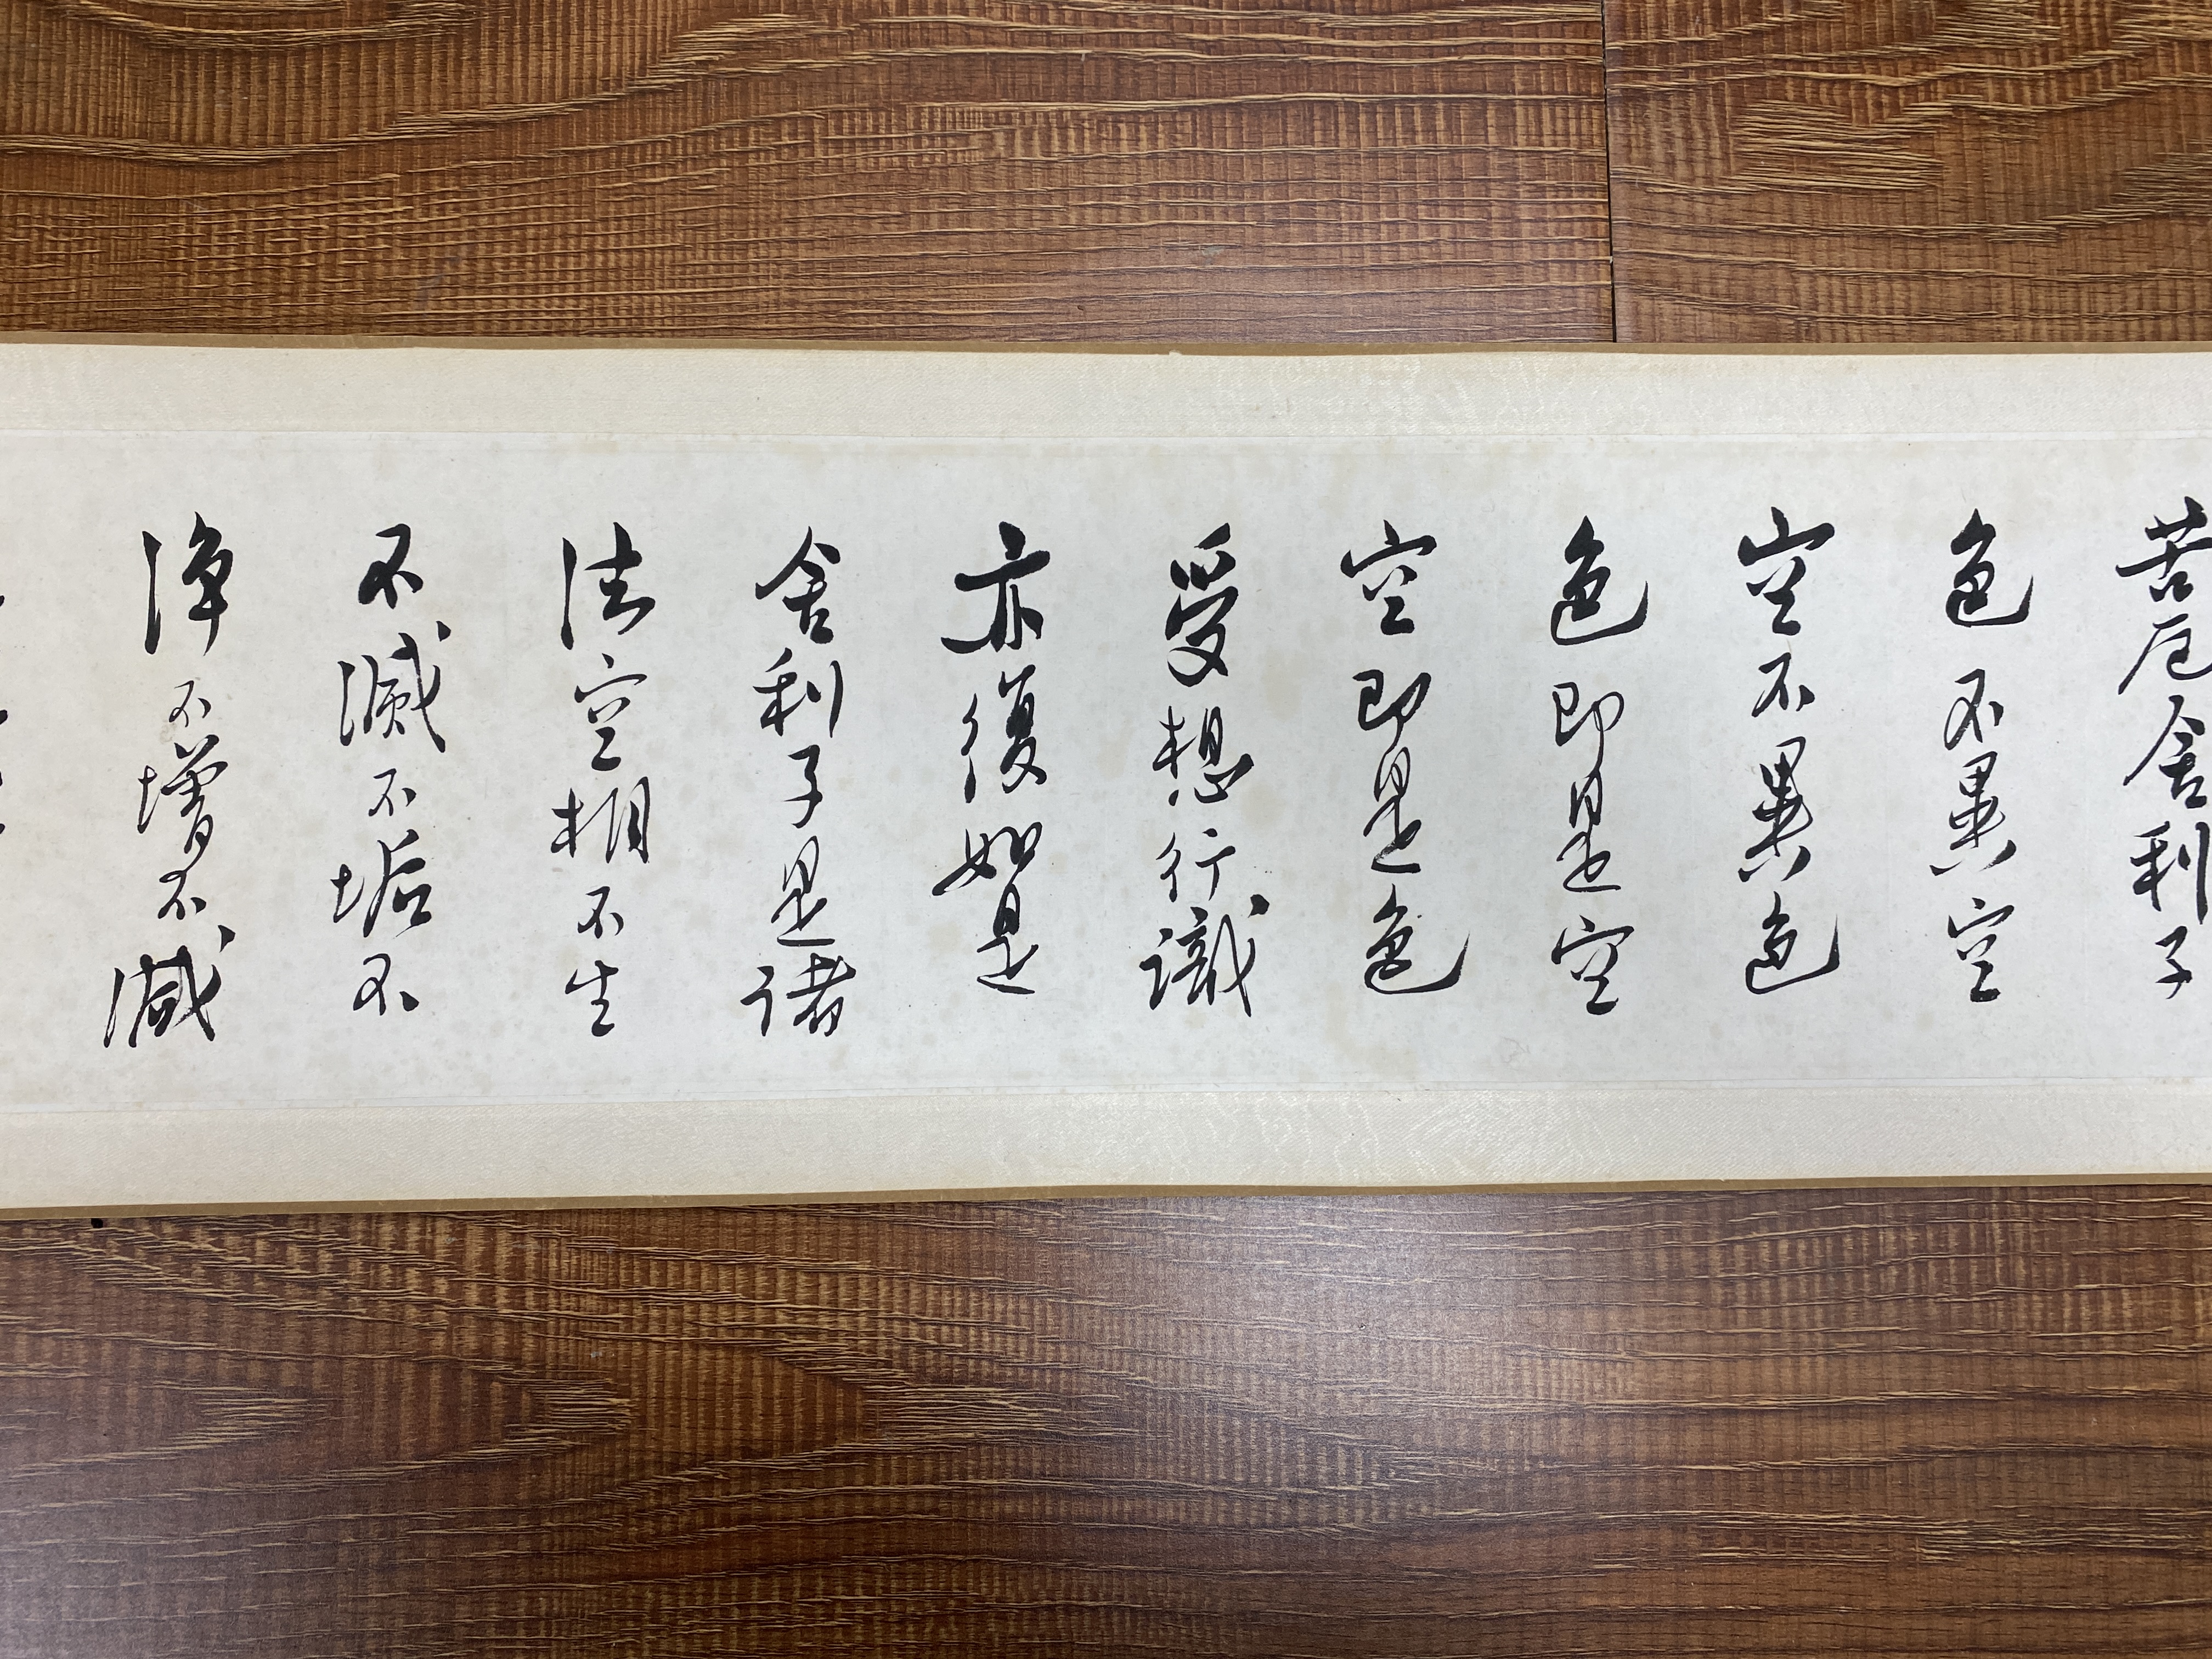 苦厄舍利子
色不異空
空不異色
色即是空
空即是色
受想行識
亦復如是
舍利子是諸
法空相不生
不滅不垢不
淨不增不減